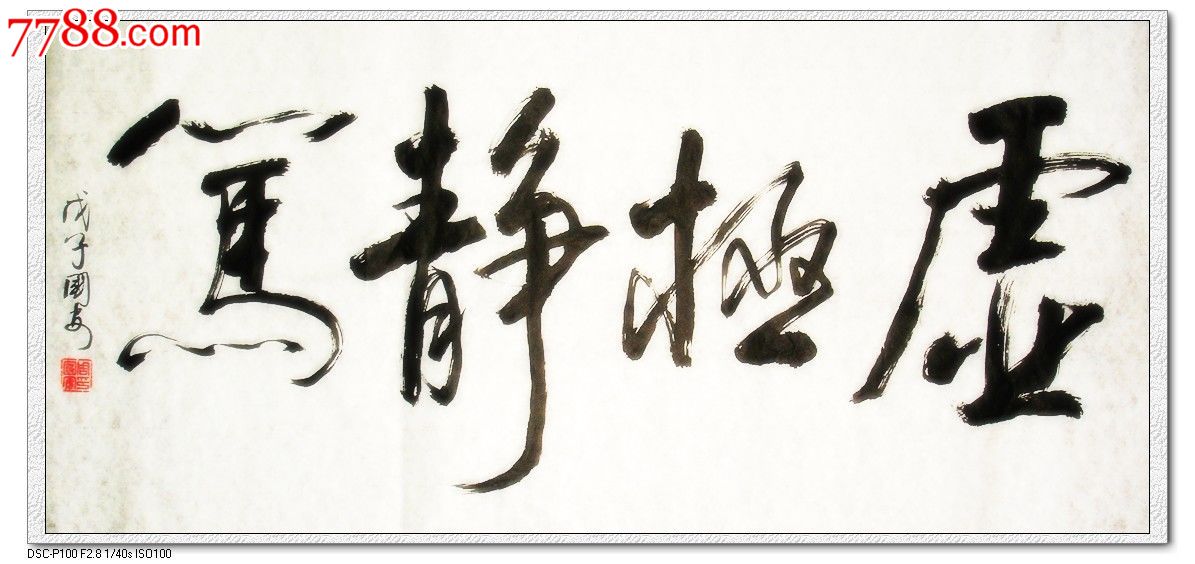 7788.com
虚極静篤
戊子國安
DSC-P100 F2.8 1/40s ISO100